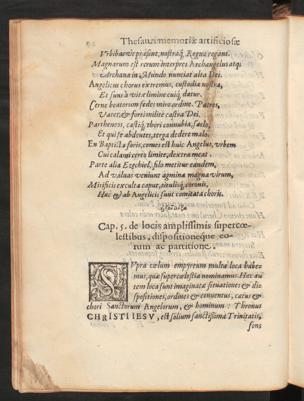 Thesauri memoriæ artificiosæ
Vrbibus ve præsint, nostraq́; Regna regant.
Magnarum est rerum interpres Archangelus atq́;
Archana in Mundo nunciat alta Dei.
Angelicus chorus extremus, custodia nostra,
Et sunt à vitæ limine cuiq́; datus.
Cerne beatorum sedes mira ordine. Patres,
Vates
Partheneos, castiq́; thori connubia,
Et qui se abdentes, terga dedere malo.
En Baptista foris, comes est huic Angelus, vrbem
Cui calami ceres limite, dextra meat.
Parte alia Ezechiel, filo metitur eandem,
Ad valuas veniunt agmina magna virum,
Mirificis exculta caput, virtutibus,
Hac & ab Angelicis sunt comitata choris.
Cap. 5. de locis amplissimis supercœ-
lestibus, dispositioneque eo-
rum ac partitione.
SVpra cælum empyreum multa loca habe-
mus, quæ supercælestia nominamus. Hæc au
tem loca sunt imaginatæ situationes & dis
positiones, ordines & conuentus, cætus &
chori Sanctorum Angelorum, & hominum: Thronus
CHRISTI IESV, est solium sanctissimæ Trinitatis,
fons